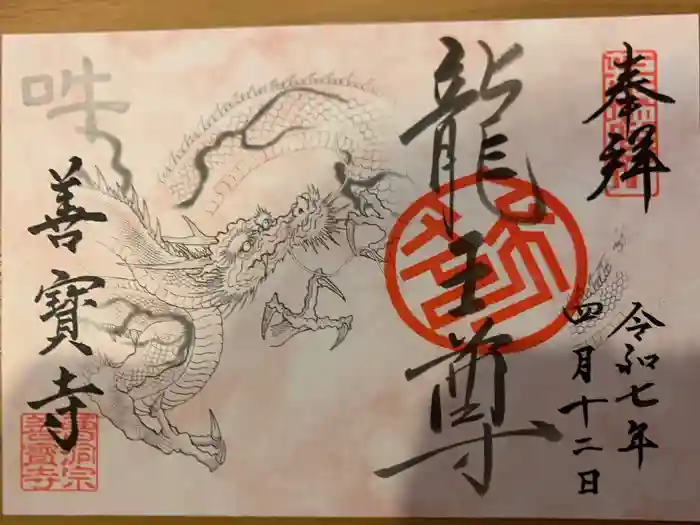 奉拝
龍王尊
令和七年
四月十二日
善寳寺
曹洞宗
善寳寺